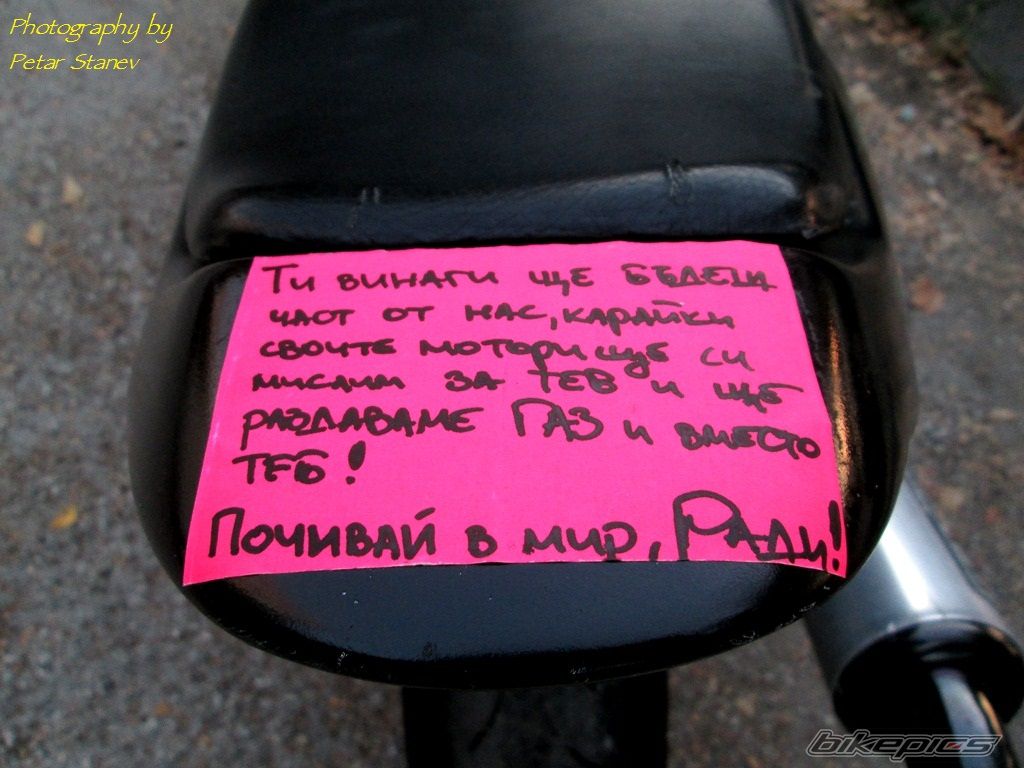 Photography by
Petar Stanev
Ти винаги ще бъдещ
част от нас, карайки
своите мотори ще си
мислим за теб и ще
раздаваме ГАЗ и вместо
теб!
Почивай в мир, Ради!
bikepics